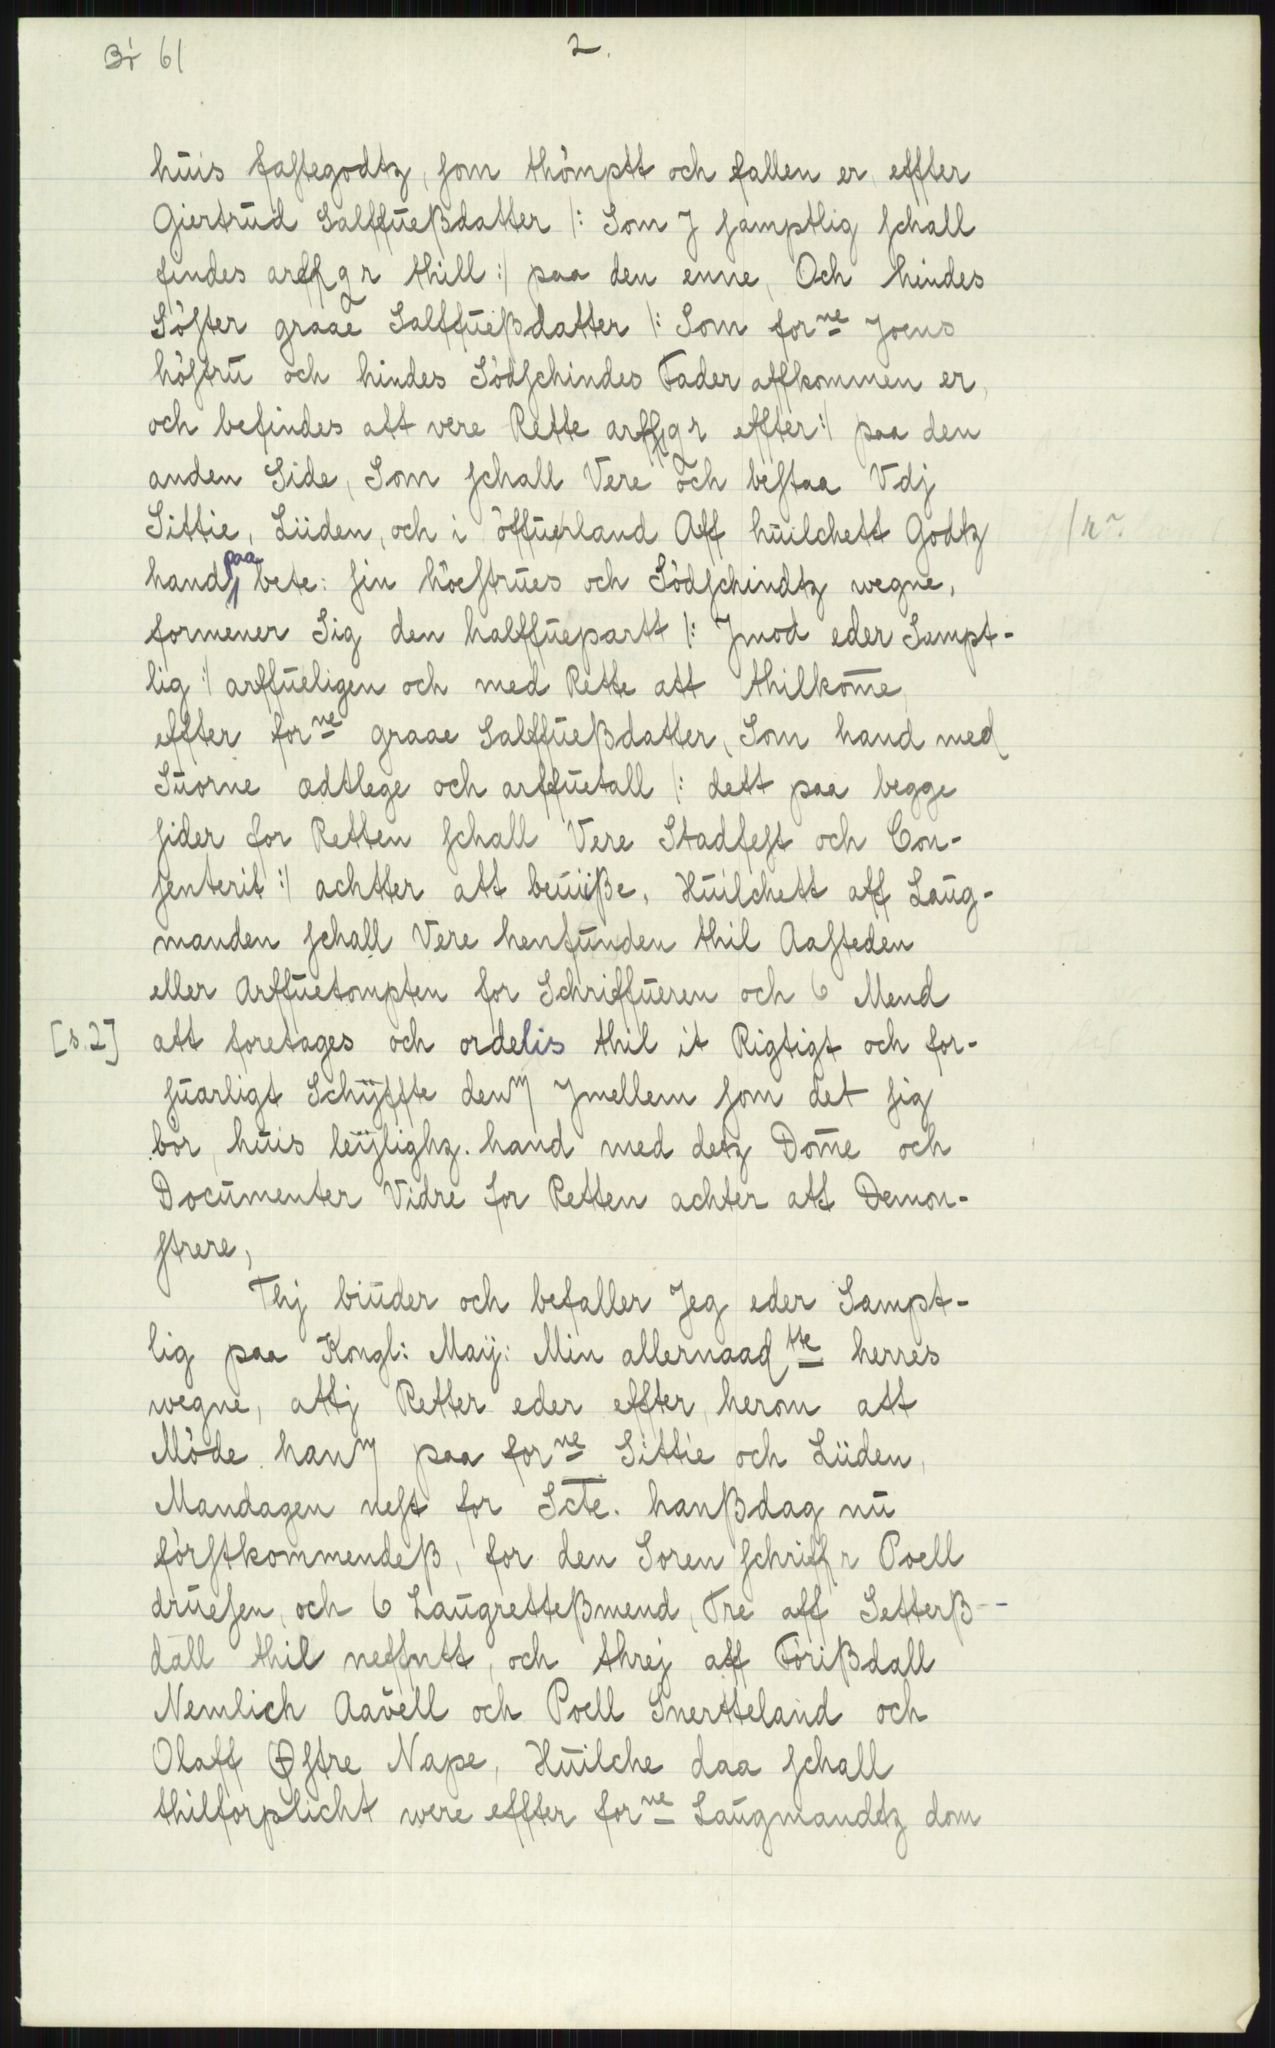 Br 61
2.
huis fastegodtz, som thòmptt och fallen er, effter
Giertrud Salffueßdatter /: Som J samptlig schall
findes arffgr thill :/ paa den enne, Och hindes
Sòster graae Salffueßdatter /: Som forne Joens
hòstru och hindes Sòdschindes Fader affkommen er,
och befindes att vere Rette arffgr effter :/ paa den
anden Side, Som schall Vere och bestaa Vdj
Sittie, Liiden, och i òffuerland Aff huilchett Godtz
hand paa bete: sin hòestrues och Sòdschindtz wegne,
formener Sig den halffuepartt /: Jmod eder Sampt-
lig :/ arffueligen och med Rette att thilkom̅e,
effter forne graae Salffueßdatter, Som hand med
Suorne ædtlege och arffuetall /: dett paa begge
sider for Retten schall Vere Stadfest och Con-
senterit :/ achtter att beuiiße, Huilchett aff Laug-
manden schall Vere henfunden thil Aasteden
eller Arffuetompten for Schriffueren och 6 Mend
[s.2] att foretages och ordelis thil it Rigtigt och for-
suarligt Schÿffte den Jmellem som det sig
bòr, huis leÿlighz. hand med detz Dom̅e och
Documenter Vidre for Retten achter att Demon-
strere,
Thj biuder och befaller Jeg eder Sampt-
lig paa Kongl: Maÿ: Min allernaadste herres
wegne, attj Retter eder effter, herom att
Mòde han paa forne Sittie och Liiden,
Mandagen nest for Scte. hanßdag nu
fòrstkommendeß, for den Soren schriffr Poell
druesen, och 6 Laugretteßmend, Tre aff Setterß-
dall thil neffntt, och threj aff Fòrißdall
Nemlich Aavell och Poell Snertteland och
Olaff Østre Nape, Huilche daa schall
thilforplicht were effter forne Laugmandtz dom